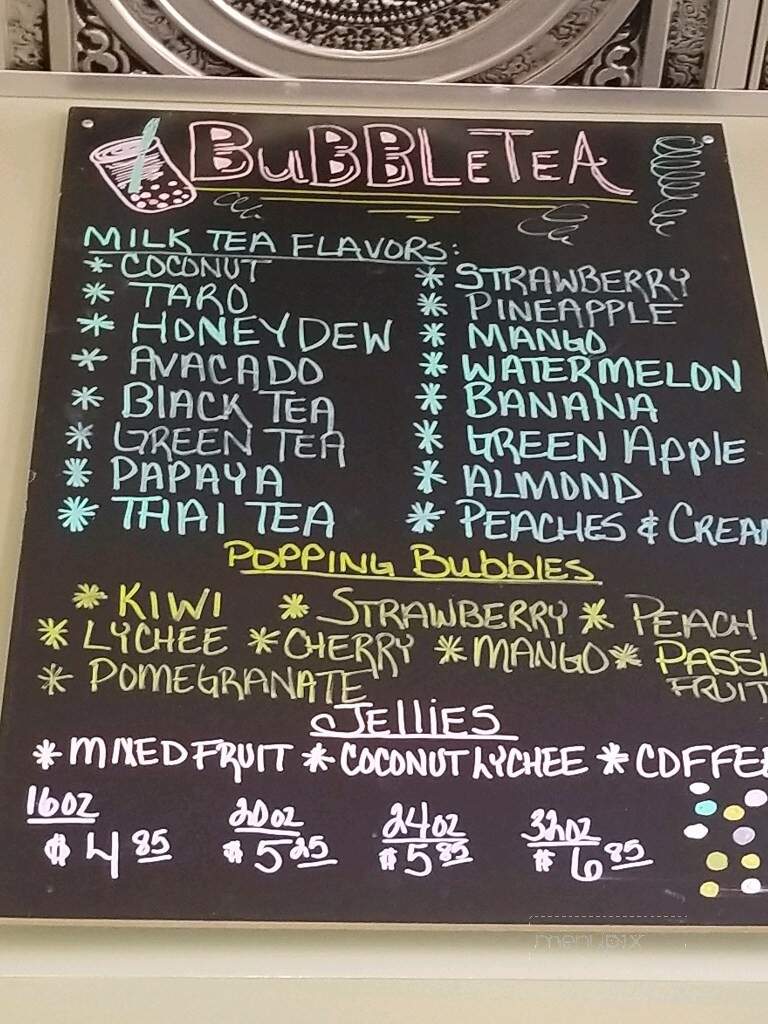 BUBBLE TEA
MILK TEA FLAVORS:
* COCONUT
* TARO
* HONEYDEW
* AVACADO
* BLACK TEA
* GREEN TEA
* PAPAYA
* THAI TEA
* STRAWBERRY
* PINEAPPLE
* MANGO
* WATERMELON
* BANANA
* GREEN APPLE
* ALMOND
* PEACHES & CREAM
POPPING BUBBLES
* KIWI * STRAWBERRY * PEACH
* LYCHEE * CHERRY * MANGO * PASSI
* POMEGRANATE FRUIT
JELLIES
* MIXED FRUIT * COCONUT LYCHEE * COFFEE
16oz 20oz 24oz 32oz
$4.85 $5.25 $5.85 $6.85
menupix